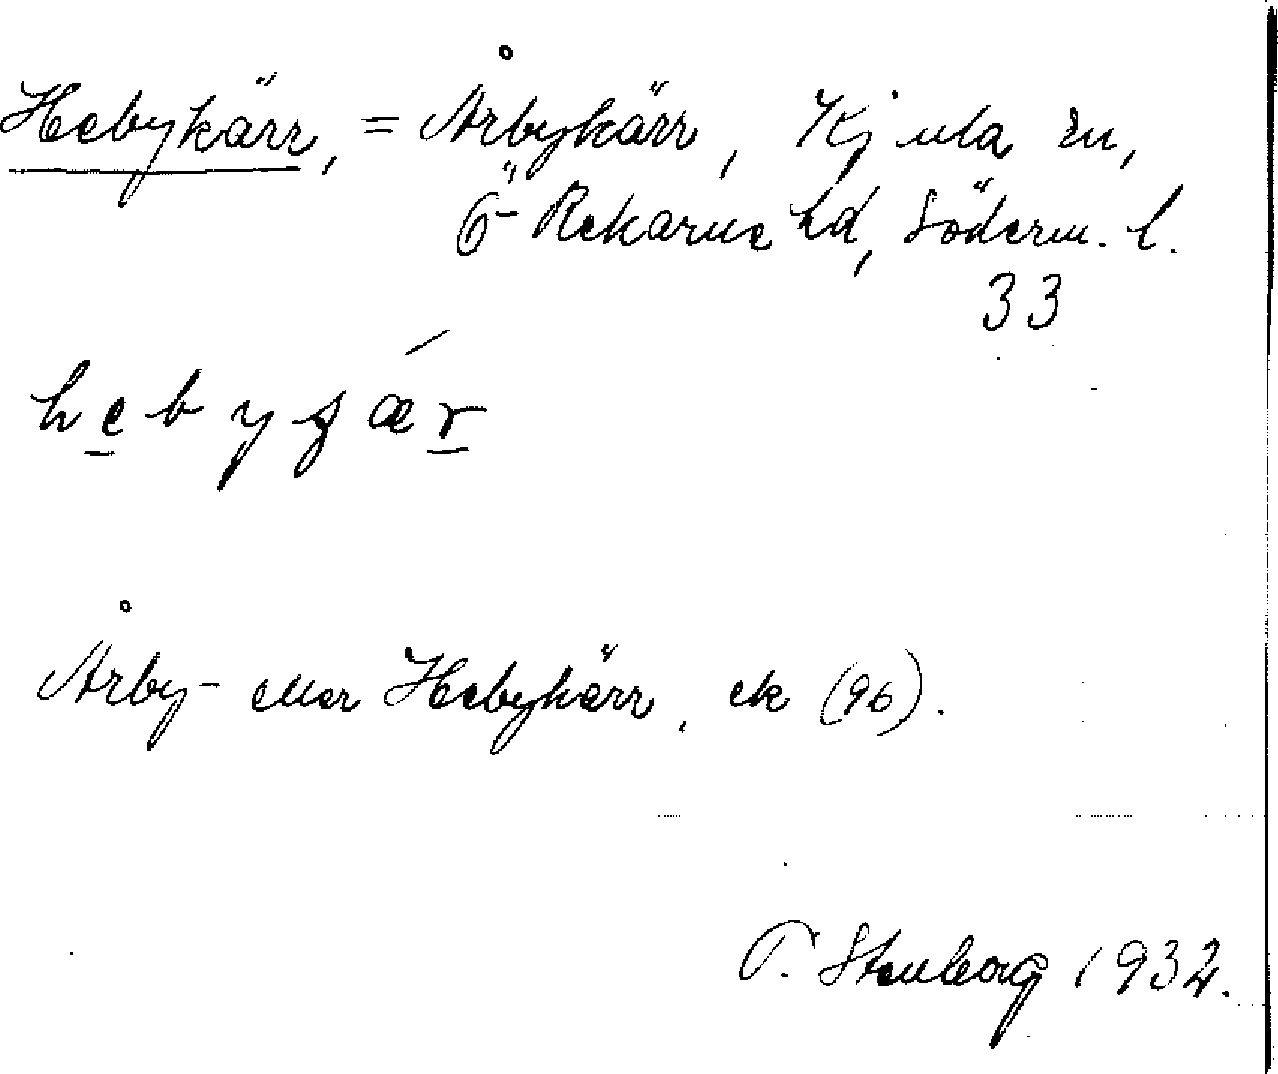 Hebykärr, = Årbykärr, Kjula sn,
Ö Rekarne hd, Söderm. l.
33
hebyʒǽr
Årby- eller Hebykärr, ek (96).
T. Stenborg 1932.